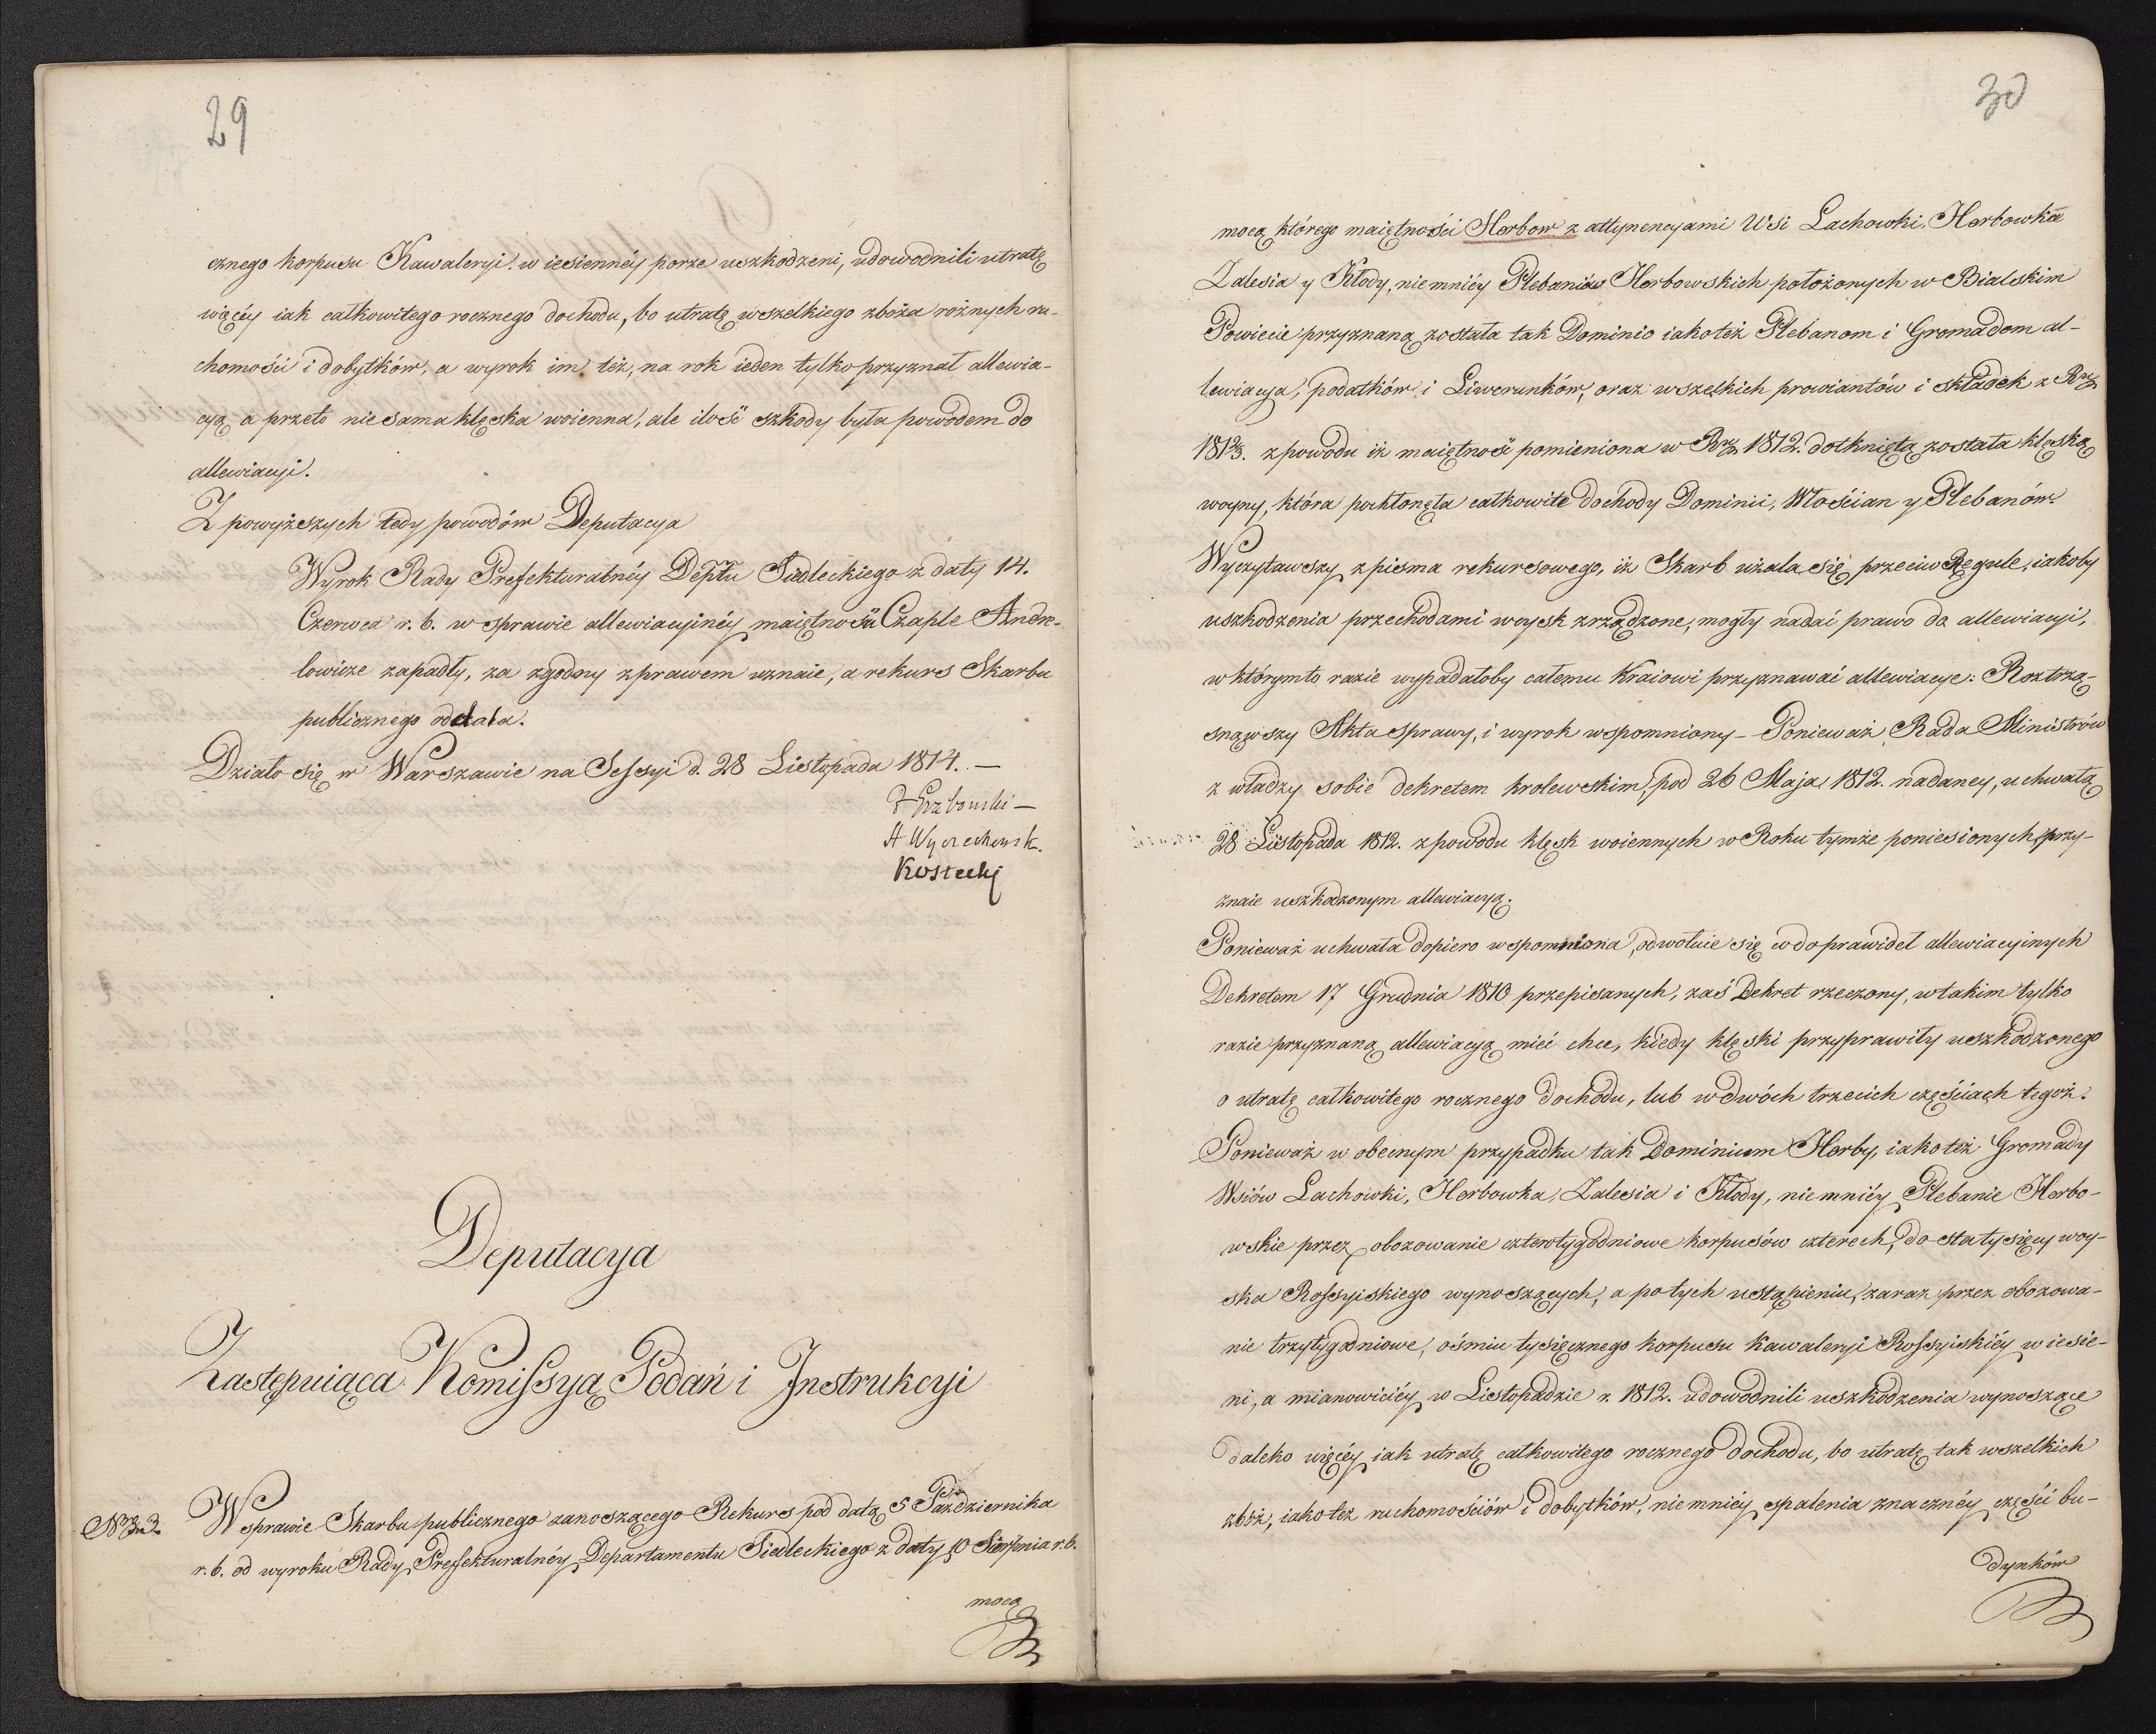 29
cznego korpusu Kawaleryi w iesiennéy porze uszkodzeni, udowodnili utratę
więcéy iak całkowitego rocznego dochodu, bo utratę wszelkiego zboża rożnych ru-
chomości i dobytków, a wyrok im też, na rok ieden tylko przyznał allewia-
cyą a przeto nie sama klęska woienna, ale ilość szkody była powodem do
allewiacyi.
Z powyższych tedy powodów Deputacya
Wyrok Rady Prefekturalnéy Deptu Siedleckiego z daty 14.
Czerwca r. b. w sprawie allewiacyinéy maiętności Czaple Andre-
lowicze zapadły, za zgodny z prawem uznaie, a rekurs Skarbu
publicznego oddala.
Działo się w Warszawie na Sessyi d. 28 Listopada 1814. —
Grzbowski —
A Wyczechowsk.
Kostecki
Deputacya
Zastępuiąca Komissyą Podań i Instrukcyi
W sprawie Skarbu publicznego zanoszącego Rekurs pod datą 5 Października
r. b. od wyroku Rady Prefekturalnéy Departamentu Siedleckiego z daty 10 Sierpnia r. b.
mocą
30
mocą którego maiętności Horbow z attynencyami Wsi Lachowki, Horbowka
Zalesia y Kłody, niemniéy Plebaniów Horbowskich położonych w Bialskim
Powiecie przyznaną została tak Dominio iakoteż Plebanom i Gromadom al-
lewiacya, podatków i Liwerunków, oraz wszelkich prowiantów i składek z Rz
1812/3. z powodu iż maiętność pomieniona w Rz 1812. dotkniętą została klęską
woyny, która pochłonęła całkowite dochody Dominii, Włościan y Plebanów.
Wyczytawszy z pisma rekursowego, iż Skarb użala się przeciw Regule, iakoby
uszkodzenia przechodami woysk zrządzone, mogły nadać prawo do allewiacyi,
w którymto razie wypadałoby całemu Kraiowi przyznawać allewiacye: Roztrzą-
snąwszy Akta sprawy, i wyrok wspomniony – Ponieważ Rada Ministrów
z władzy sobie dekretem krolewskim pod 26 Maja 1812. nadaney, uchwałą
28 Listopada 1812. z powodu klęsk woiennych w Roku tymże poniesionych, przy-
znaie uszkodzonym allewiacyą.
Ponieważ uchwała dopiero wspomniona, odwołuie się do prawideł allewiacyinych
Dekretem 17 Grudnia 1810 przepisanych, zaś Dekret rzeczony, w takim tylko
razie przyznaną allewiacyą mieć chce, kiedy klęski przyprawiły uszkodzonego
o utratę całkowitego rocznego dochodu, lub w dwóch trzecich częściach tegoż.
Ponieważ w obecnym przypadku tak Dominium Horby, iakoteż Gromady
Wsiów Lachowki, Horbowka, Zalesia i Kłody, niemniéy Plebanie Horbo-
wskie przez obozowanie czterotygodniowe korpusów czterech, do sta tysięcy woy-
ska Rossyiskiego wynoszących, a po tych ustąpieniu, zaraz przez obozowa-
nie trzytygodniowe, ośmiu tysięcznego korpusu Kawaleryi Rossyiskiéy w iesie-
ni, a mianowiciéy w Listopadzie r. 1812. udowodnili uszkodzenia wynoszące
daleko więcéy iak utratę całkowitego rocznego dochodu, bo utratę tak wszelkich
zbóż, iakoteż ruchomościów i dobytków, niemniéy spalenia znacznéy części bu-
dynków